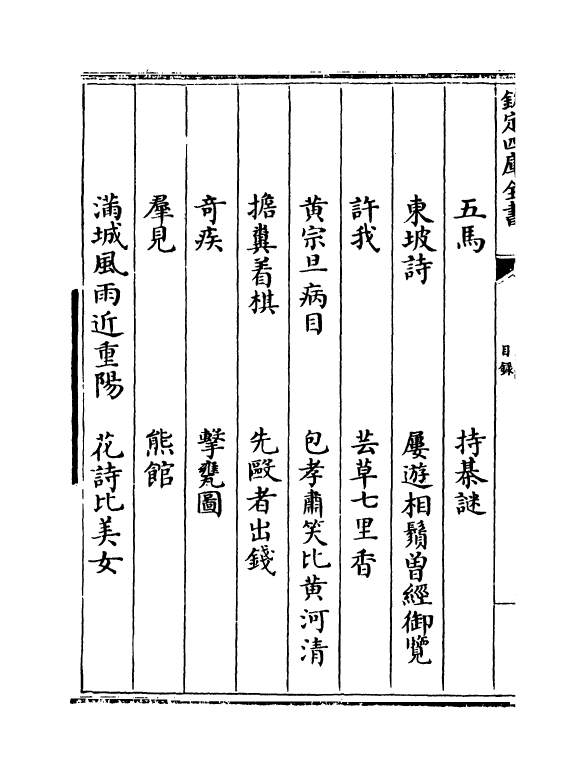 欽定四庫全書
目録
五馬 持棊謎
東坡詩 屢遊相鬚曽經御覽
許我 芸草七里香
黄宗旦病目 包孝肅笑比黄河清
擔糞着棋 先毆者出錢
竒疾 擊甕圖
羣見 熊館
滿城風雨近重陽 花詩比美女